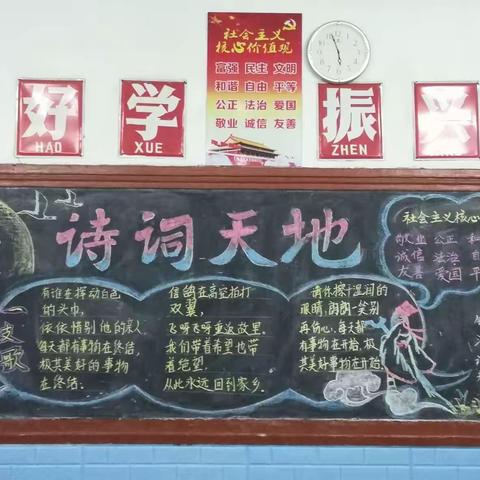 社会主义
核心价值观
富强 民主 文明
和谐 自由 平等
公正 法治 爱国
敬业 诚信 友善
好 学 振 兴
HAO XUE ZHEN
诗词天地
一支歌
有谁在挥动白色
的头巾，
依依惜别他的亲人
每天都有事物在终结，
极其美好的事物
在终结．
信鸽在高空拍打
双翼，
飞呀飞呀重返故里．
我们带着希望也带
着绝望．
从此永远回到家乡．
请你擦干湿润的
眼睛，朗朗一笑别
再伤心，每天都
有事物在开始，极
其美好事物在开始．
社会主义核心
敬业 公正 和
诚信 法治 自
友善 爱国 平